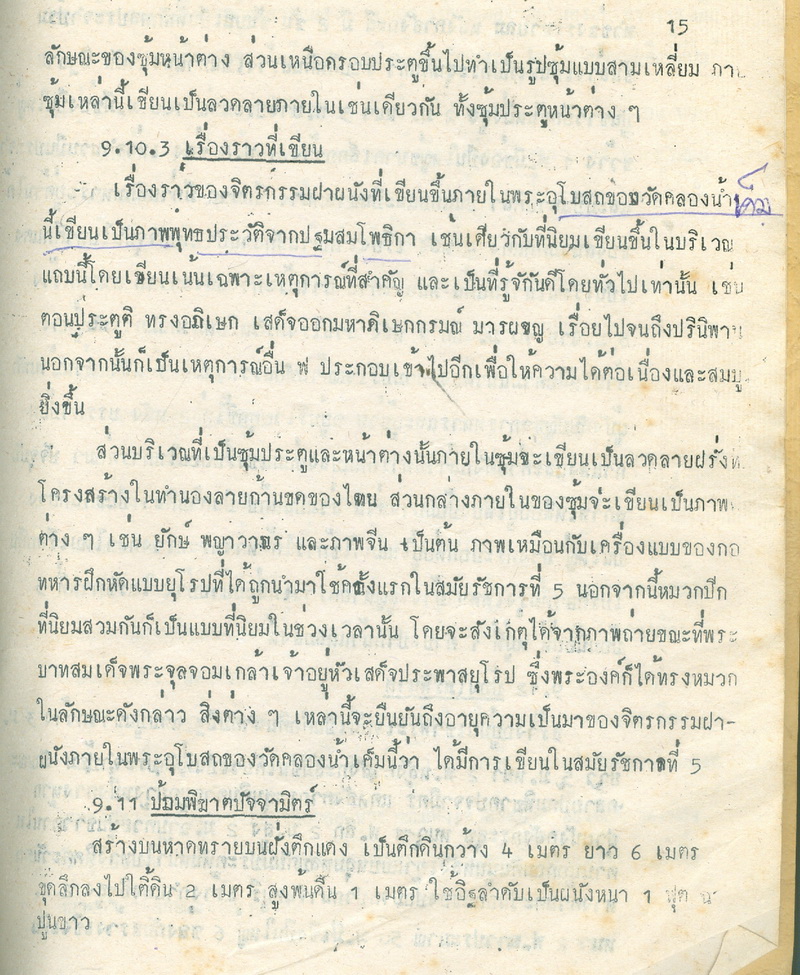 15
ลักษณะของซุ้มหน้าต่าง ส่วนเหนือกรอบประตูขึ้นไปทำเป็นรูปซุ้มแบบสามเหลี่ยม
ซุ้มเหล่านี้เขียนเป็นลวดลายภายในเช่นเดียวกัน ทั้งซุ้มประตูหน้าต่าง ๆ
9.10.3 เรื่องราวที่เขียน
เรื่องราวของจิตรกรรมฝาผนังที่เขียนขึ้นภายในพระอุโบสถของวัดคลองน้ำเค็ม
นี้เขียนเป็นภาพพุทธประวัติจากปฐมสมโพธิกา เช่นเดียวกับที่นิยมเขียนขึ้นในบริเวณ
แถบนี้โดยเขียนเน้นเฉพาะเหตุการณ์ที่สำคัญ และเป็นที่รู้จักกันดีโดยทั่วไปเท่านั้น เช่น
ตอนประตูติ ทรงอภิเษก เสด็จออกมหาภิเษกกรมณ์ มารผจญ เรื่อยไปจนถึงปรินิพาน
นอกจากนั้นก็เป็นเหตุการณ์อื่น ๆ ประกอบเข้าไปอีกเพื่อให้ความได้ต่อเนื่องและสมบู
ยิ่งขึ้น
ส่วนบริเวณที่เป็นซุ้มประตูและหน้าต่างนั้นภายในซุ้มจะเขียนเป็นลวดลายฝรั่ง
โครงสร้างในทำนองลายก้านขดของไทย ส่วนกลางภายในของซุ้มจะเขียนเป็นภาพ
ต่าง ๆ เช่น ยักษ์ พญาวานร และภาพจีน เป็นต้น ภาพเหมือนกับเครื่องแบบของกอ
ทหารฝึกหัดแบบยุโรปที่ได้ถูกนำมาใช้ครั้งแรกในสมัยรัชการที่ 5 นอกจากนี้หมวกปีก
ที่นิยมสวมกันก็เป็นแบบที่นิยมในช่วงเวลานั้น โดยจะสังเกตุได้จากภาพถ่ายขณะที่พระ
บาทสมเด็จพระจุลจอมเกล้าเจ้าอยู่หัวเสด็จประพาสยุโรป ซึ่งพระองค์ก็ได้ทรงหมวก
ในลักษณะดังกล่าว สิ่งต่าง ๆ เหล่านี้จะยืนยันถึงอายุความเป็นมาของจิตรกรรมฝา-
ผนังภายในพระอุโบสถของวัดคลองน้ำเค็มนี้ว่า ได้มีการเขียนในสมัยรัชกาลที่ 5
9.11 ป้อมพิฆาตปัจจามิตร์
สร้างบนหาดทรายบนฝั่งตึกแดง เป็นตึกดินกว้าง 4 เมตร ยาว 6 เมตร
ขุดลึกลงไปใต้ดิน 2 เมตร สูงพ้นดิน 1 เมตร ใช้อิฐลำดับเป็นผนังหนา 1 ฟุต
ปูนขาว